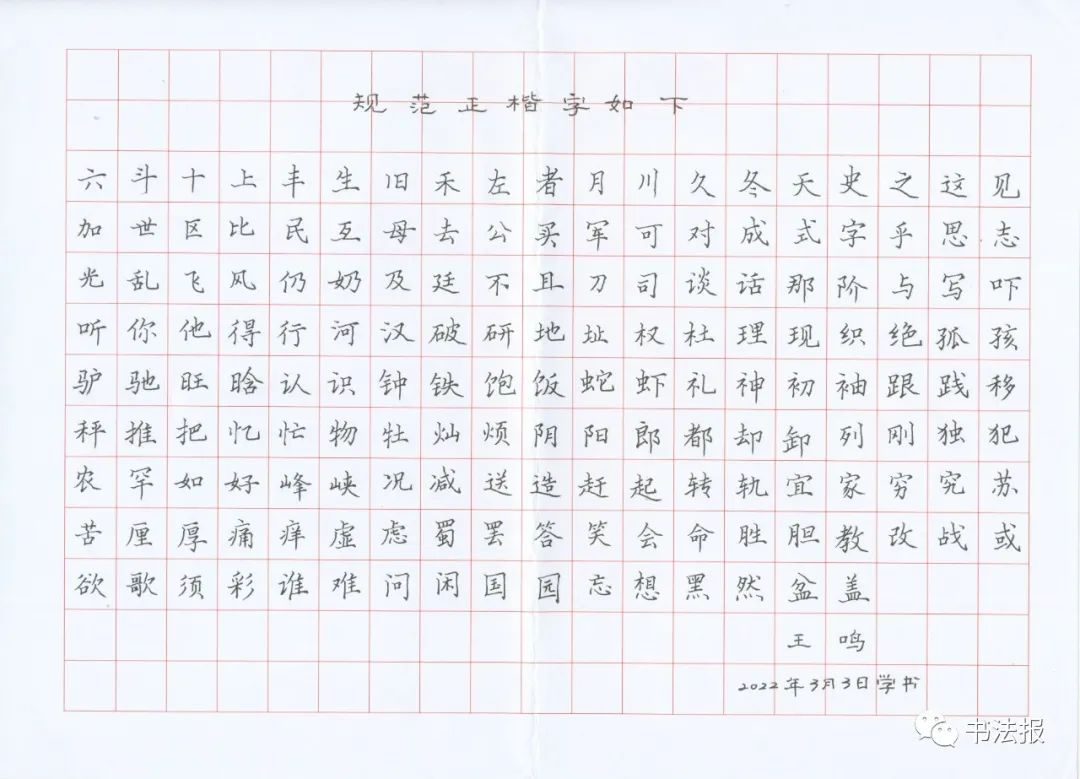 规范正楷字如下
六斗十上丰生旧禾左者月川久冬天史之这见
加世区比民互母去公买军可对成式字乎思志
光乱飞风仍奶及廷不且刀司谈话那阶与写吓
听你他得行河汉破研地址权杜理现织绝孤孩
驴驰旺晗认识钟铁饱饭蛇虾礼神初袖跟践移
秤推把忆忙物牡灿烦阴阳郎都却卸列刚独犯
农罕如好峰峡况减送造赶起转轨宜家穷究苏
苦厘厚痛痒虚虑蜀罢答笑会命胜胆教改战或
欲歌须彩谁难问闲国园忘想黑然盆盖
王鸣
2022年3月3日学书
书法报